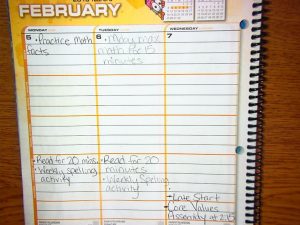 FEBRUARY
MONDAY
TUESDAY
WEDNESDAY
5
6
7
• Practice Math
facts
math for 15
minutes
• Read for 20 mins.
• Weekly spelling
activity
• Read for 20
minutes
• Weekly Spelling
activity
• Late Start
• Core Values
Assembly at 2:15